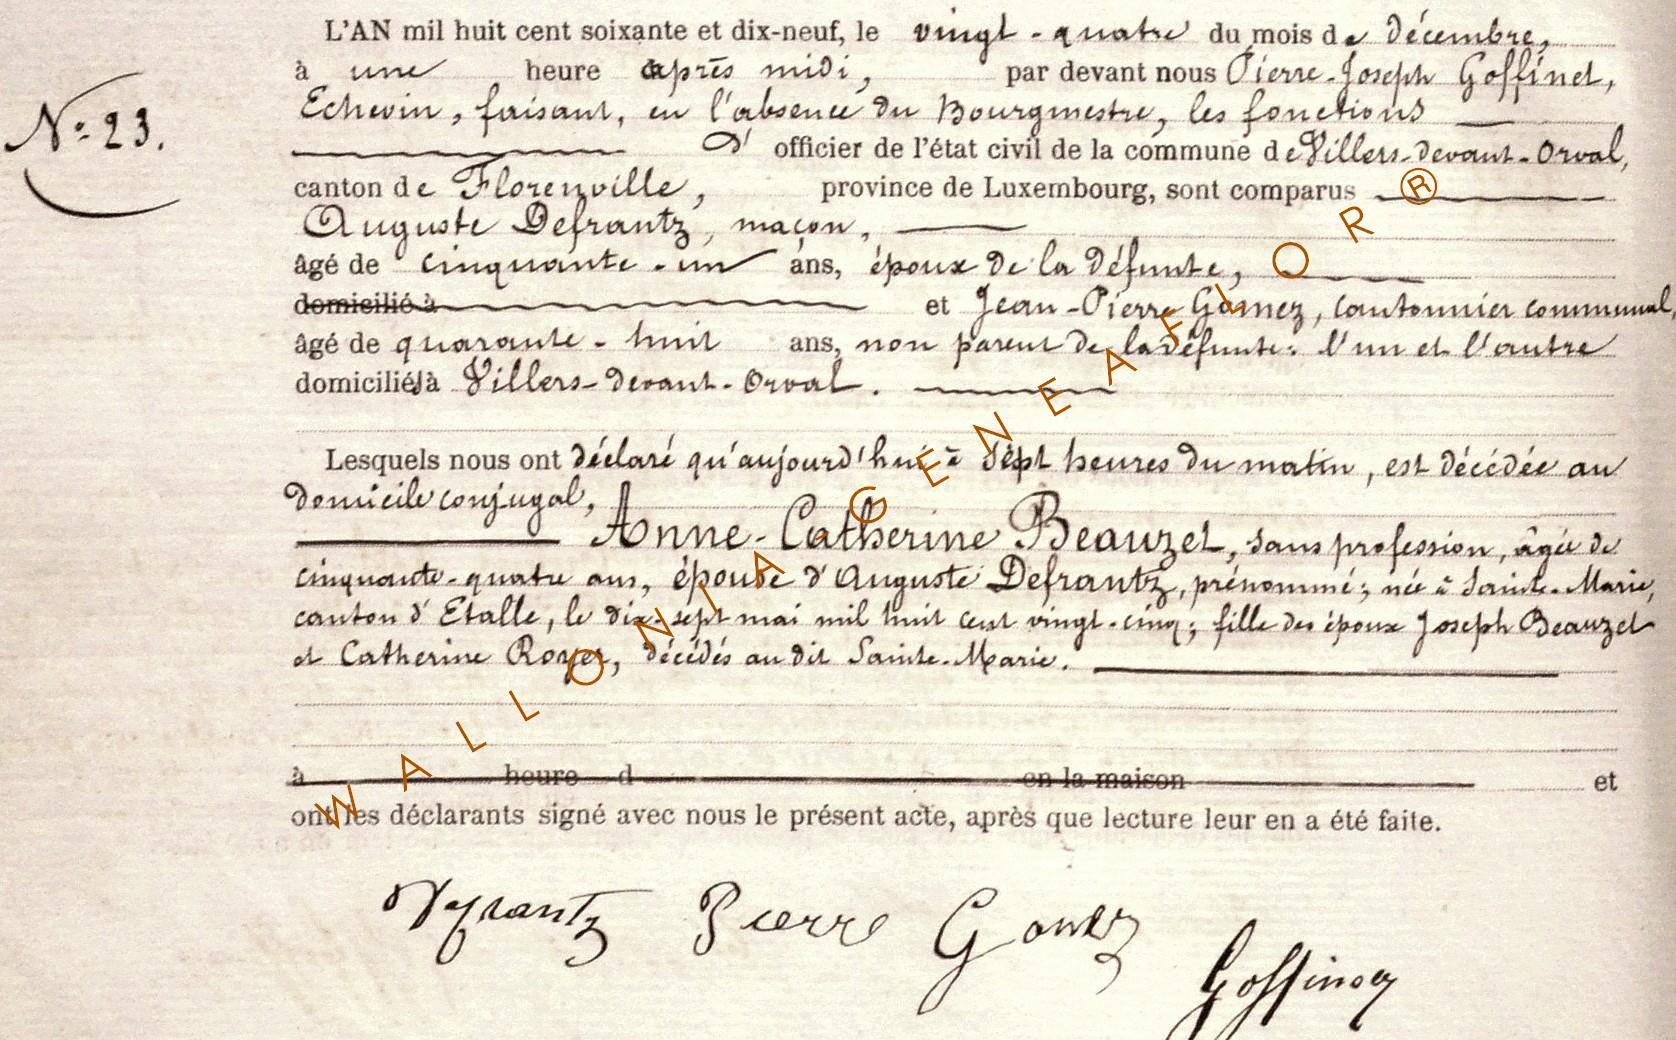 L'AN mil huit cent soixante et dix-neuf, le vingt-quatre du mois de décembre,
à une heure après midi, par devant nous Pierre-Joseph Goffinet,
Echevin, faisant, en l'absence du Bourgmestre, les fonctions
N° 23.
d' officier de l'état civil de la commune de Villers-devant-Orval,
canton de Florenville, province de Luxembourg, sont comparus
Auguste Defrantz, maçon,
âgé de cinquante-un ans, époux de la défunte,
domicilié à et Jean-Pierre Gomez, cantonnier communal,
âgé de quarante-huit ans, non parent de la défunte: l'un et l'autre
domiciliés à Villers-devant-Orval.
Lesquels nous ont déclaré qu'aujourd'hui à sept heures du matin, est décédée au
domicile conjugal,
Anne-Catherine Beauzet, sans profession, âgée de
cinquante-quatre ans, épouse d'Auguste Defrantz, prénommé; née à Sainte-Marie,
canton d'Etalle, le dix-sept mai mil huit cent vingt-cinq; fille des époux Joseph Beauzet
et Catherine Royer, décédés au dit Sainte-Marie.
à heure d en la maison et
ont les déclarants signé avec nous le présent acte, après que lecture leur en a été faite.
Defrantz Pierre Gomez
Goffinet
WALLONIA GENEAFLOR®